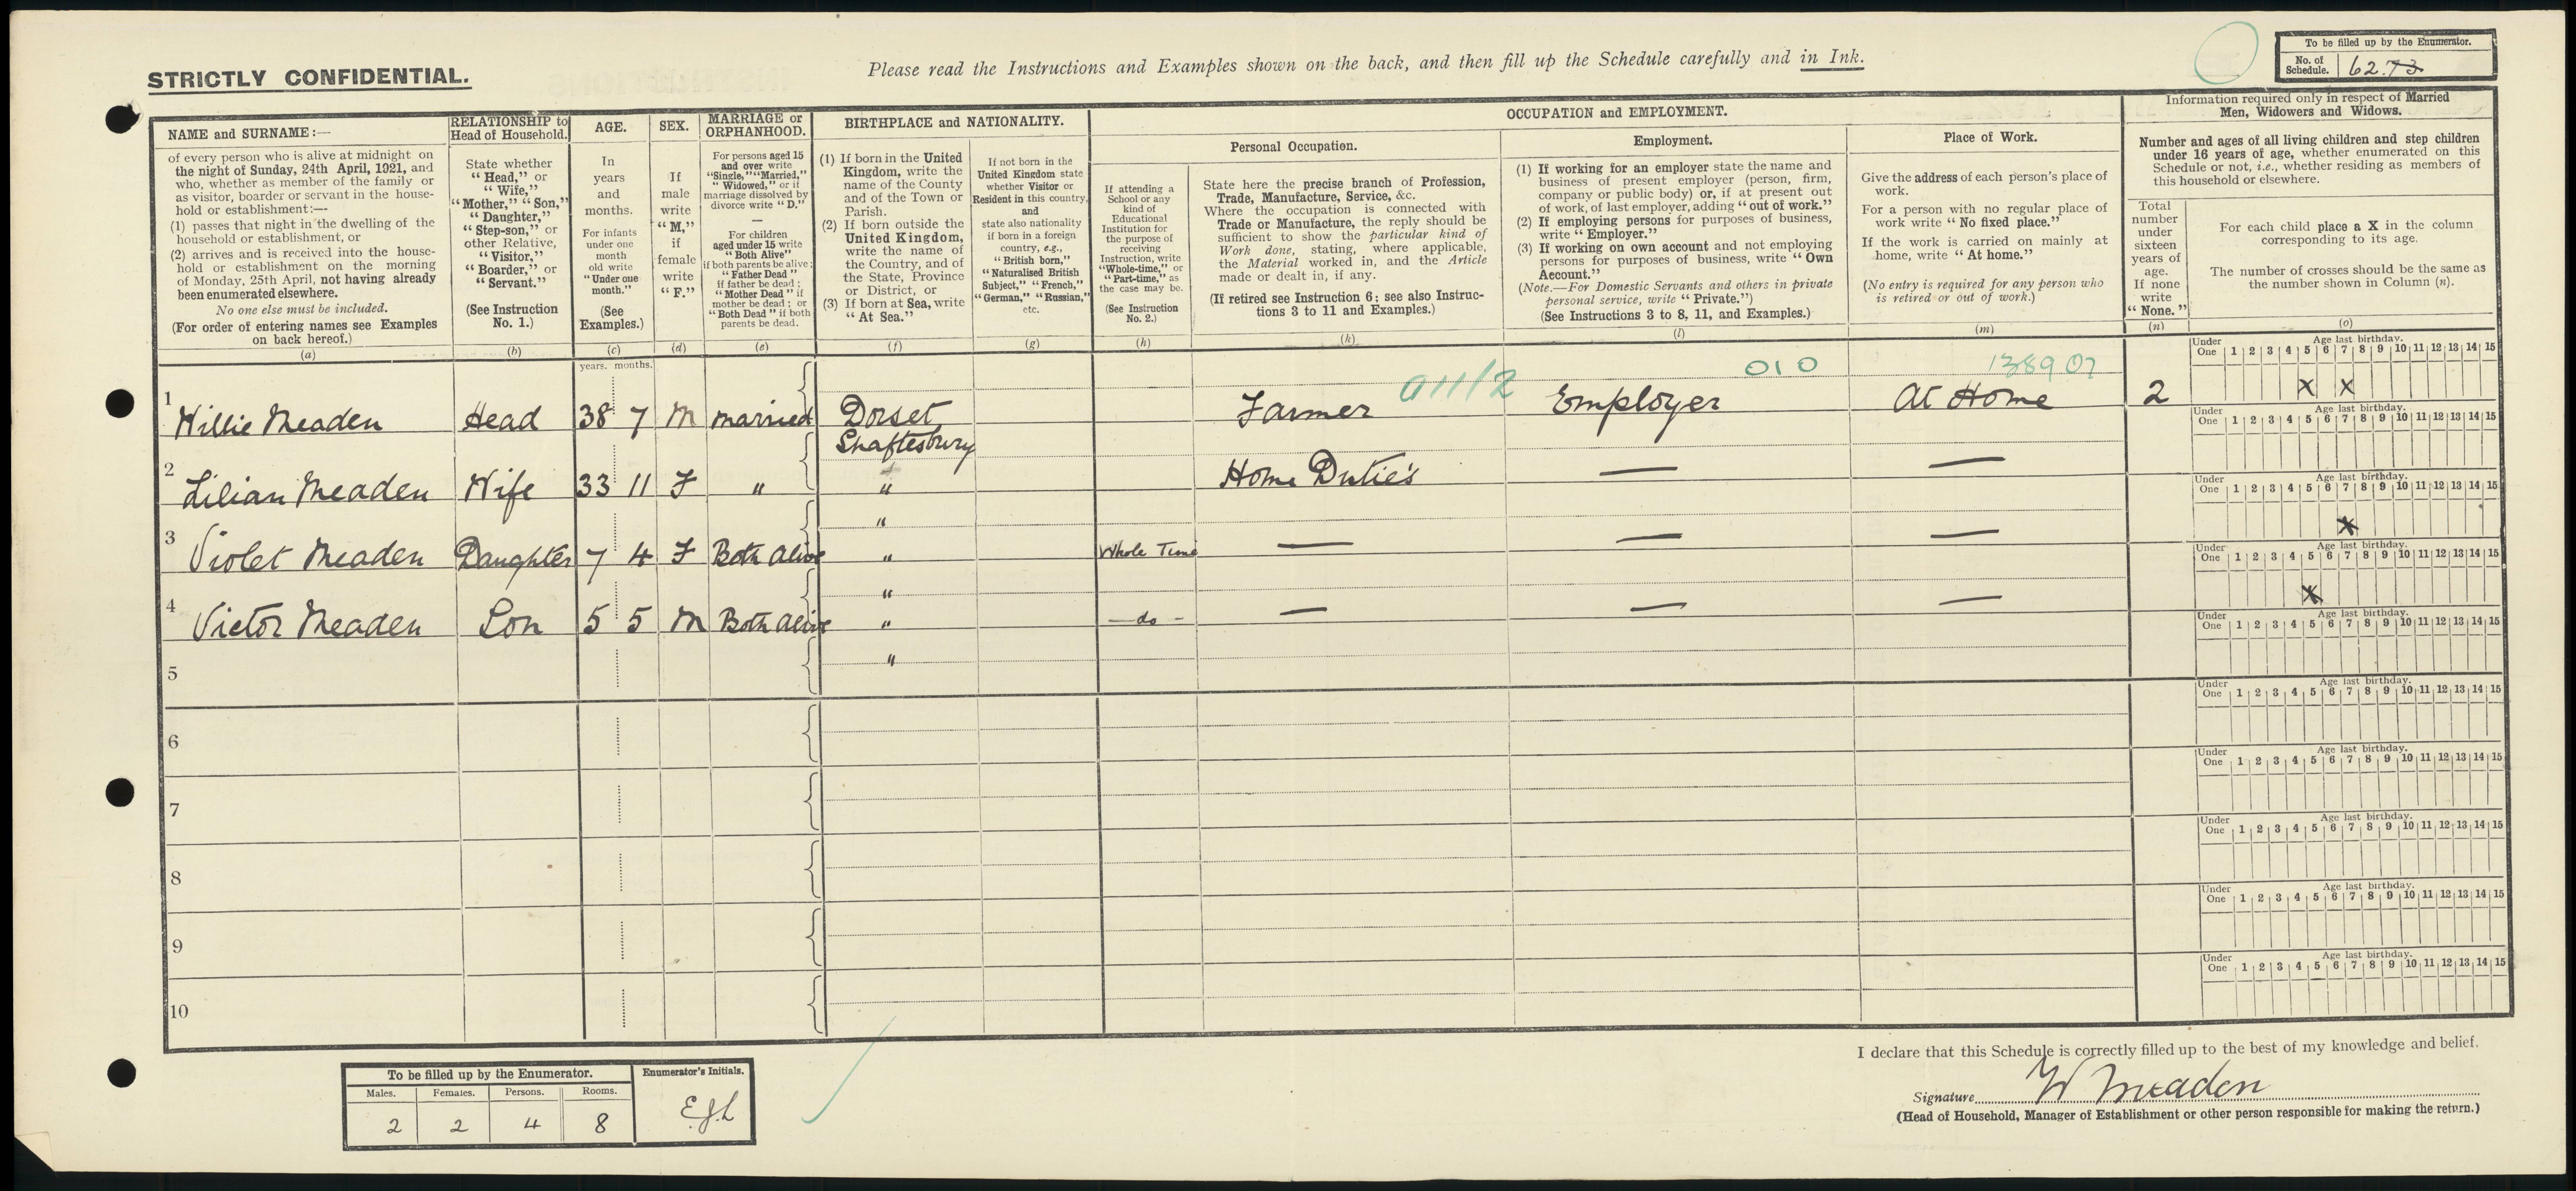 STRICTLY CONFIDENTIAL.
Please read the Instructions and Examples shown on the back, and then fill up the Schedule carefully and in Ink.
To be filled up by the Enumerator.
No. of Schedule. 62. 73
NAME and SURNAME:—
of every person who is alive at midnight on
the night of Sunday, 24th April, 1921, and
who, whether as member of the family or
as visitor, boarder or servant in the house-
hold or establishment:—
(1) passes that night in the dwelling of the
household or establishment, or
(2) arrives and is received into the house-
hold or establishment on the morning
of Monday, 25th April, not having already
been enumerated elsewhere.
No one else must be included.
(For order of entering names see Examples
on back hereof.)
(a)
RELATIONSHIP to
Head of Household.
State whether
"Head," or
"Wife,"
"Mother," "Son,"
"Daughter,"
"Step-son," or
other Relative,
"Visitor,"
"Boarder," or
"Servant."
(See Instruction
No. 1.)
(b)
AGE.
In
years
and
months.
For infants
under one
month
old write
"Under one
month."
(See
Examples.)
(c)
SEX.
If
male
write
"M,"
if
female
write
"F."
(d)
MARRIAGE or
ORPHANHOOD.
For persons aged 15
and over write
"Single," "Married,"
"Widowed," or if
marriage dissolved by
divorce write "D."
—
For children
aged under 15 write
"Both Alive"
if both parents be alive;
"Father Dead"
if father be dead;
"Mother Dead" if
mother be dead; or
"Both Dead" if both
parents be dead.
(e)
BIRTHPLACE and NATIONALITY.
(1) If born in the United
Kingdom, write the
name of the County
and of the Town or
Parish.
(2) If born outside the
United Kingdom,
write the name of
the Country, and of
the State, Province
or District, or
(3) If born at Sea, write
"At Sea."
(f)
If not born in the
United Kingdom state
whether Visitor or
Resident in this country,
and
state also nationality
if born in a foreign
country, e.g.,
"British born,"
"Naturalised British
Subject," "French,"
"German," "Russian,"
etc.
(g)
OCCUPATION and EMPLOYMENT.
Personal Occupation.
If attending a
School or any
kind of
Educational
Institution for
the purpose of
receiving
Instruction, write
"Whole-time," or
"Part-time," as
the case may be.
(See Instruction
No. 2.)
(h)
State here the precise branch of Profession,
Trade, Manufacture, Service, &c.
Where the occupation is connected with
Trade or Manufacture, the reply should be
sufficient to show the particular kind of
Work done, stating, where applicable,
the Material worked in, and the Article
made or dealt in, if any.
(If retired see Instruction 6; see also Instruc-
tions 3 to 11 and Examples.)
(k)
Employment.
(1) If working for an employer state the name and
business of present employer (person, firm,
company or public body) or, if at present out
of work, of last employer, adding "out of work."
(2) If employing persons for purposes of business,
write "Employer."
(3) If working on own account and not employing
persons for purposes of business, write "Own
Account."
(Note.—For Domestic Servants and others in private
personal service, write "Private.")
(See Instructions 3 to 8, 11, and Examples.)
(l)
Place of Work.
Give the address of each person's place of
work.
For a person with no regular place of
work write "No fixed place."
If the work is carried on mainly at
home, write "At home."
(No entry is required for any person who
is retired or out of work.)
(m)
Information required only in respect of Married
Men, Widowers and Widows.
Number and ages of all living children and step children
under 16 years of age, whether enumerated on this
Schedule or not, i.e., whether residing as members of
this household or elsewhere.
Total
number
under
sixteen
years of
age.
If none
write
"None."
(n)
For each child place a X in the column
corresponding to its age.
The number of crosses should be the same as
the number shown in Column (n).
(o)
years. months.
Age last birthday.
Under One 1 2 3 4 5 6 7 8 9 10 11 12 13 14 15
1 Willie Meaden Head 38 7 M married Dorset Shaftesbury Farmer 011/2 Employer 010 At Home 138907 2 X X
Age last birthday.
Under One 1 2 3 4 5 6 7 8 9 10 11 12 13 14 15
2 Lilian Meaden Wife 33 11 F " " " Home Dutie's — —
Age last birthday.
Under One 1 2 3 4 5 6 7 8 9 10 11 12 13 14 15
3 Violet Meaden Daughter 7 4 F Both Alive " " Whole Time — — — X
Age last birthday.
Under One 1 2 3 4 5 6 7 8 9 10 11 12 13 14 15
4 Victor Meaden Son 5 5 M Both Alive " " — do — — — — X
Age last birthday.
Under One 1 2 3 4 5 6 7 8 9 10 11 12 13 14 15
5
Age last birthday.
Under One 1 2 3 4 5 6 7 8 9 10 11 12 13 14 15
6
Age last birthday.
Under One 1 2 3 4 5 6 7 8 9 10 11 12 13 14 15
7
Age last birthday.
Under One 1 2 3 4 5 6 7 8 9 10 11 12 13 14 15
8
Age last birthday.
Under One 1 2 3 4 5 6 7 8 9 10 11 12 13 14 15
9
Age last birthday.
Under One 1 2 3 4 5 6 7 8 9 10 11 12 13 14 15
10
To be filled up by the Enumerator.
Males. Females. Persons. Rooms.
2 2 4 8
Enumerator's Initials.
E.J.L
I declare that this Schedule is correctly filled up to the best of my knowledge and belief.
Signature W Meaden
(Head of Household, Manager of Establishment or other person responsible for making the return.)